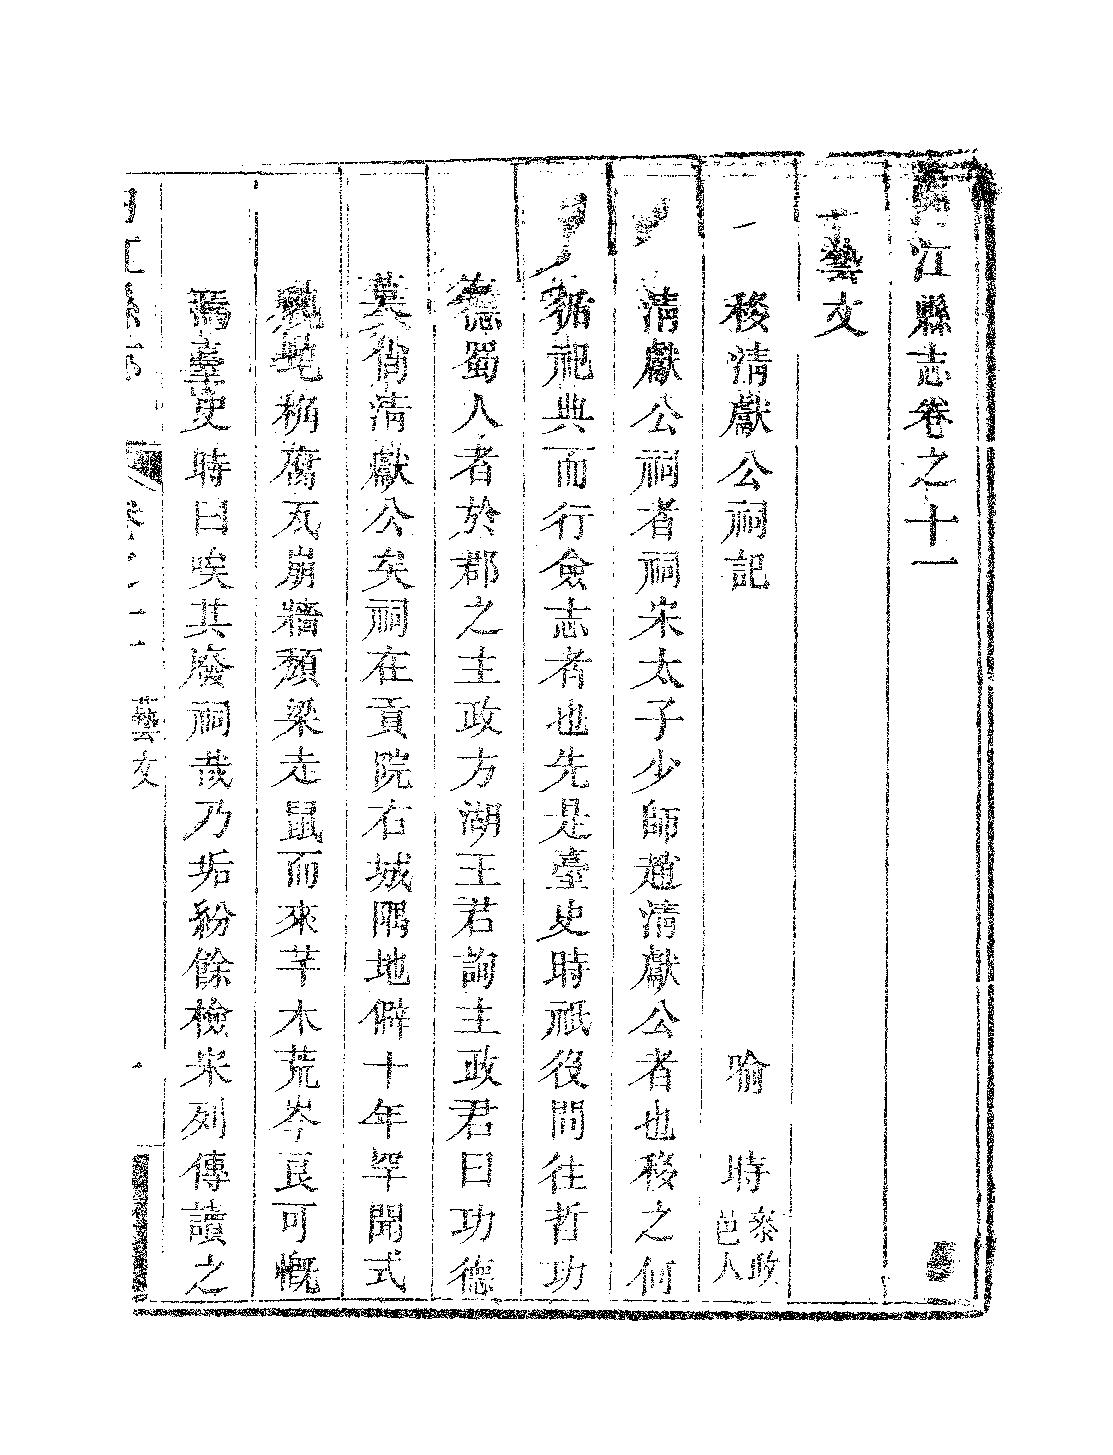 江縣志卷之十一
藝文
移清獻公祠記 喻 時 叅政邑人
清獻公祠者祠宋太子少師趙清獻公者也移之何
循祀典而行僉志者也先是臺史時祇役問往哲功
德蜀人者於郡之主政方湖王君詢主政君曰功德
莫尚清獻公矣祠在貢院右城隅地僻十年罕聞式
圮桷腐瓦崩牆頹梁走鼠而來芊木荒岑良可慨
焉臺史時曰唉其廢祠哉乃垢紛餘檢宋列傳讀之
江縣志 卷之十一 藝文